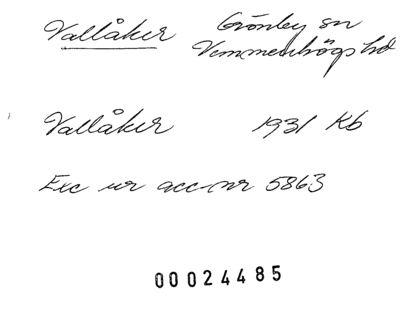 Vallåker Grönby sn
Vemmenhögs hd
Vallåker 1931 Kb
Exc ur acc-nr 5863
00024485